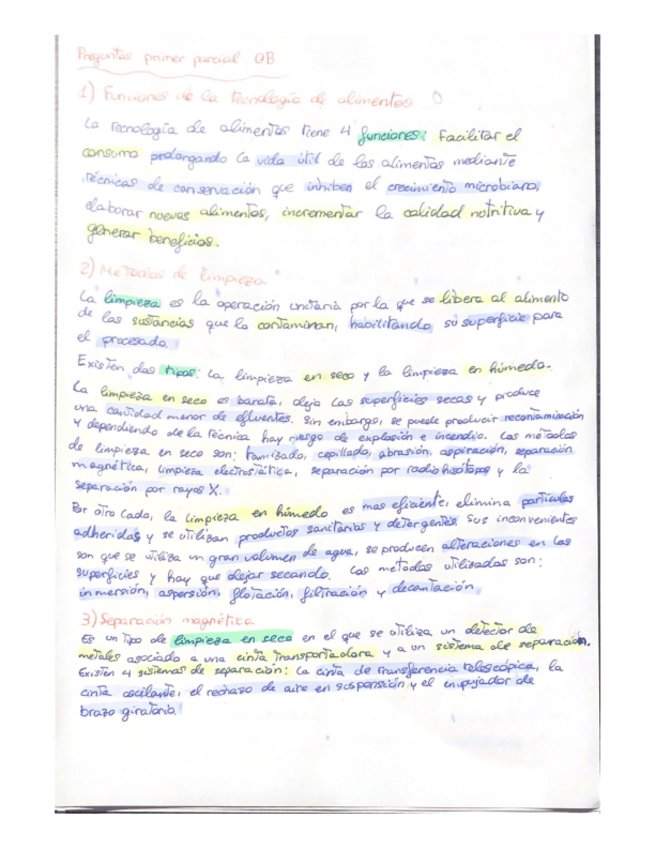 Preguntas primer parcial QB
1) Funciones de la tecnología de alimentos
La tecnología de alimentos tiene 4 funciones: Facilitar el
consumo prolongando la vida útil de los alimentos mediante
técnicas de conservación que inhiben el crecimiento microbiano,
elaborar nuevos alimentos, incrementar la calidad nutritiva y
generar beneficios.
2) Métodos de limpieza
La limpieza es la operación unitaria por la que se libera al alimento
de las sustancias que lo contaminan, habilitando su superficie para
el procesado.
Existen dos tipos: la limpieza en seco y la limpieza en húmedo.
La limpieza en seco es barata, deja las superficies secas y produce
una cantidad menor de efluentes. Sin embargo, se puede producir recontaminación
y dependiendo de la técnica hay riesgo de explosión e incendio. Los métodos
de limpieza en seco son: tamizado, cepillado, abrasión, aspiración, separación
magnética, limpieza electrostática, separación por radioisótopos y la
separación por rayos X.
Por otro lado, la limpieza en húmedo es mas eficiente, elimina partículas
adheridas y se utilizan productos sanitarios y detergentes. Sus inconvenientes
son que se utiliza un gran volumen de agua, se producen alteraciones en las
superficies y hay que dejar secando. Los métodos utilizados son:
inmersión, aspersión, flotación, filtración y decantación.
3) Separación magnética
Es un tipo de limpieza en seco en el que se utiliza un detector de
metales asociado a una cinta transportadora y a un sistema de separación.
Existen 4 sistemas de separación: La cinta de transferencia telescópica, la
cinta oscilante, el rechazo de aire en suspensión y el empujador de
brazo giratorio.